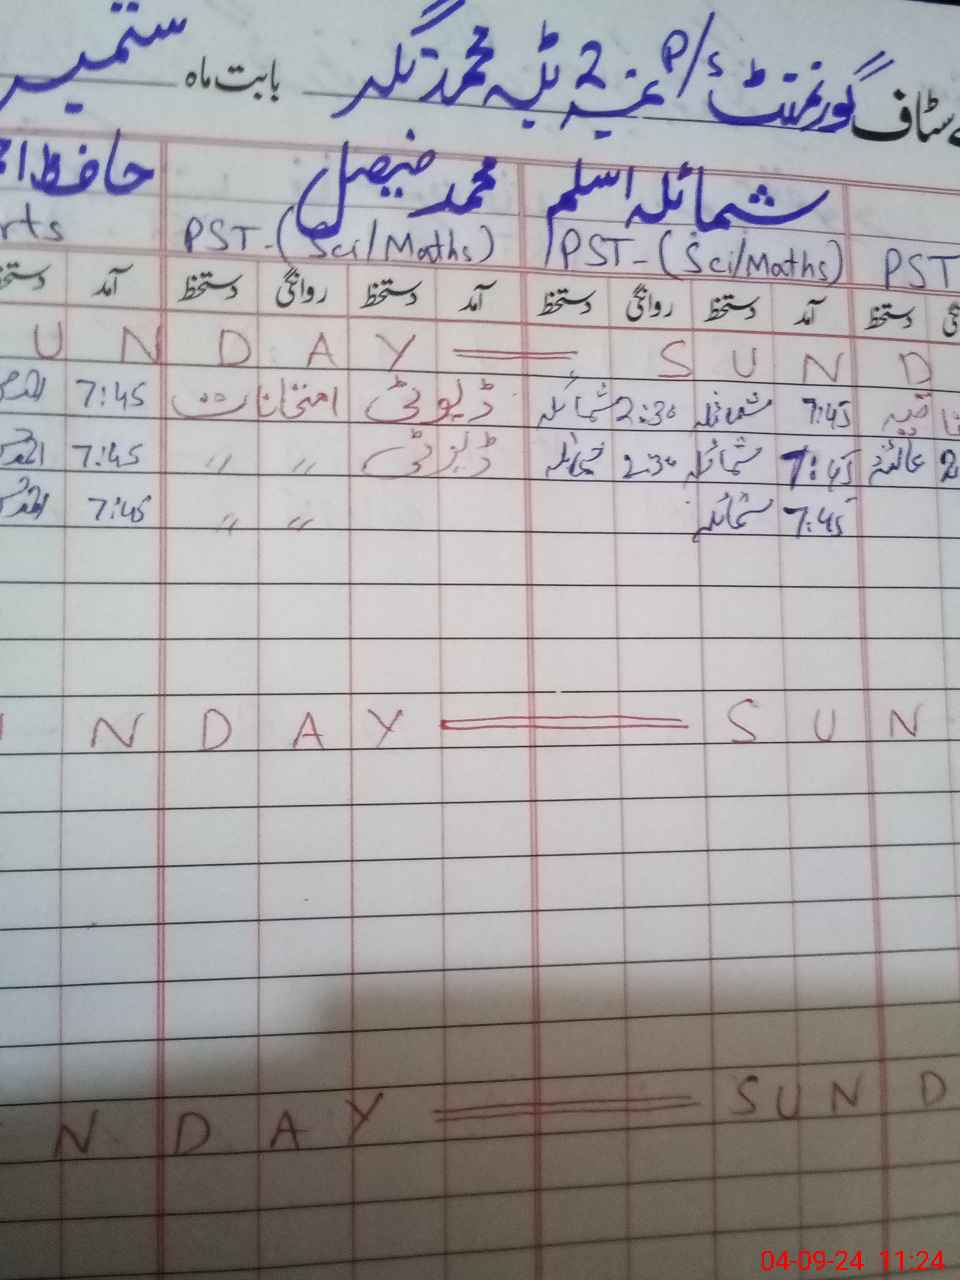 سٹاف گورنمنٹ P/S نمبر 2 ٹبہ محمد نگر بابت ماہ ستمبر
شمائلہ اسلم محمد فیصل حافظ
PST PST-(Sci/Maths) PST-(Sci/Maths) rts
دستخط آمد دستخط روانگی دستخط آمد دستخط روانگی دستخط آمد
U N D A Y = S U N D
7:45 شمائلہ 2:30 شمائلہ ڈیوٹی امتحانات 7:45
2 عائشہ 7:45 شمائلہ 2:30 شمائلہ ڈیوٹی " " 7:45
7:45 شمائلہ " " 7:45
N D A Y = S U N
N D A Y = S U N D
04-09-24 11:24